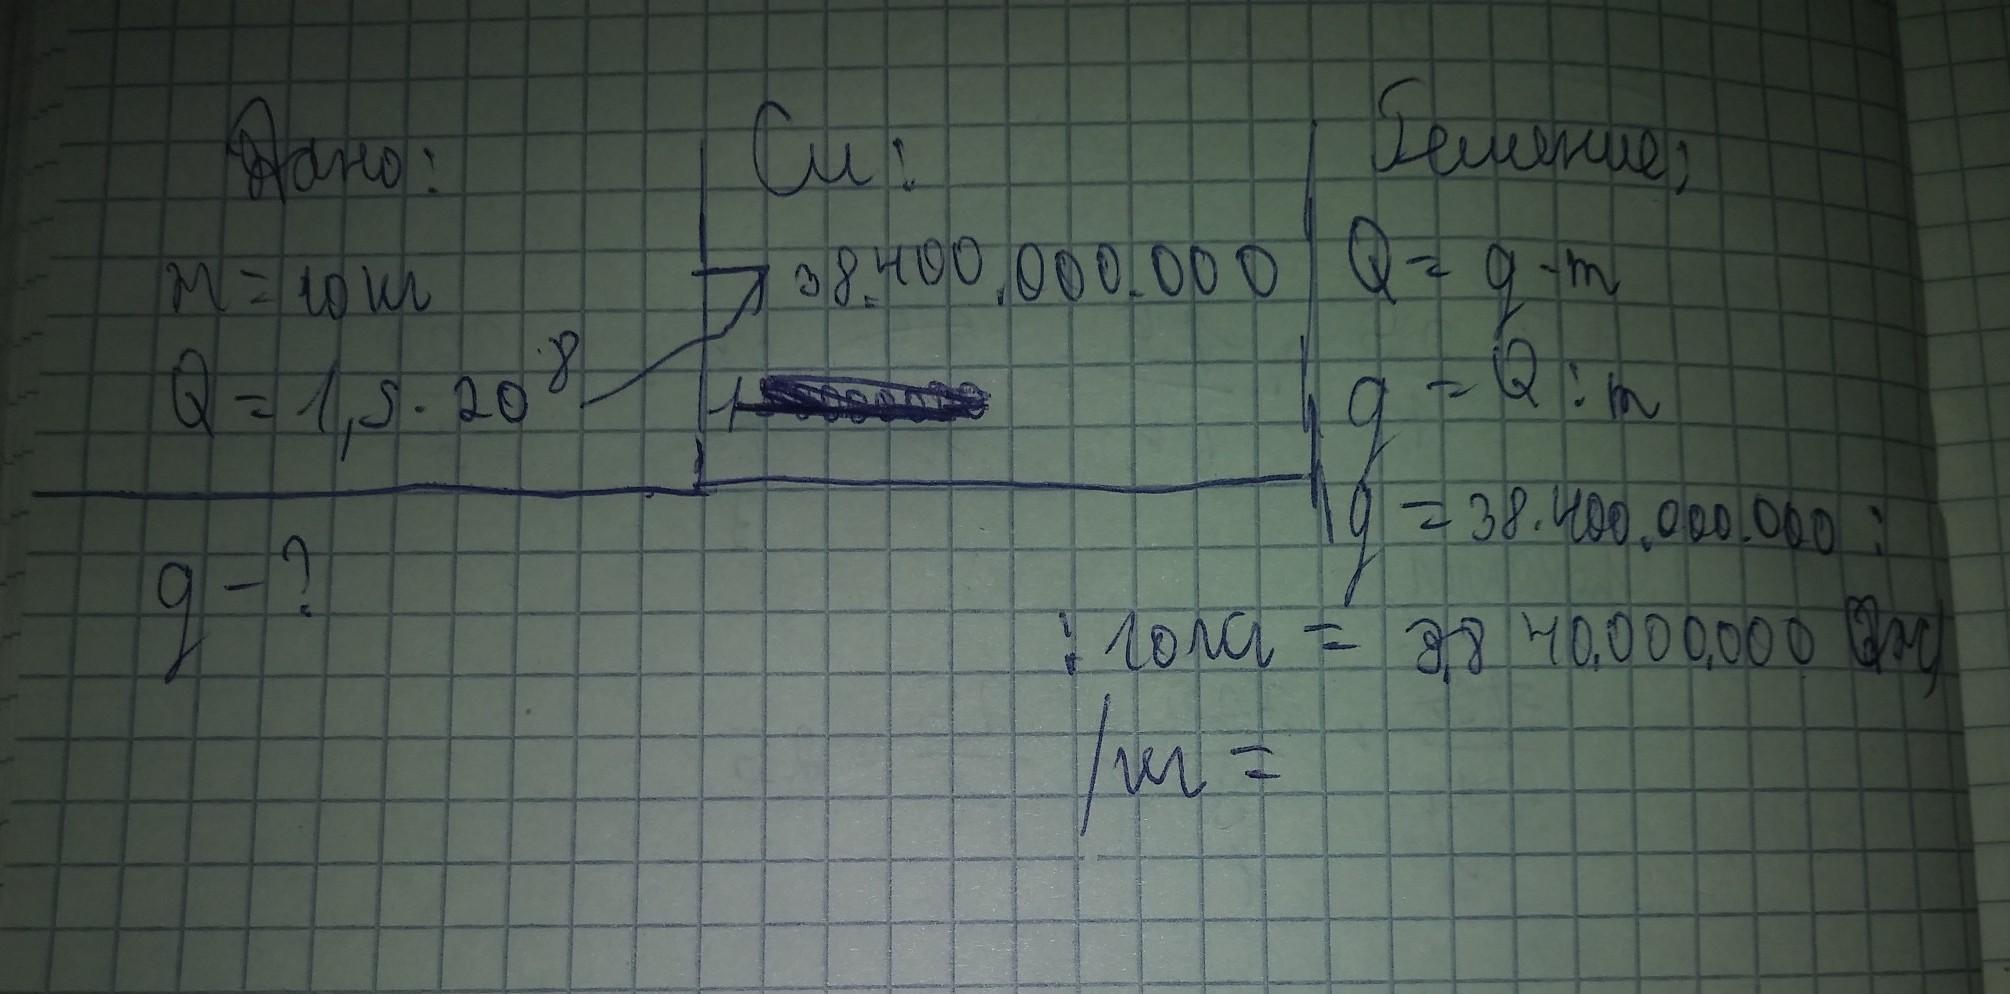 Дано:
m = 10 кг
Q = 1,5 · 20^8
q - ?
Си:
38.400.000.000
Решение:
Q = q · m
q = Q : m
q = 38.400.000.000 :
: 10 кг = 3,840.000.000 Дж
/кг =